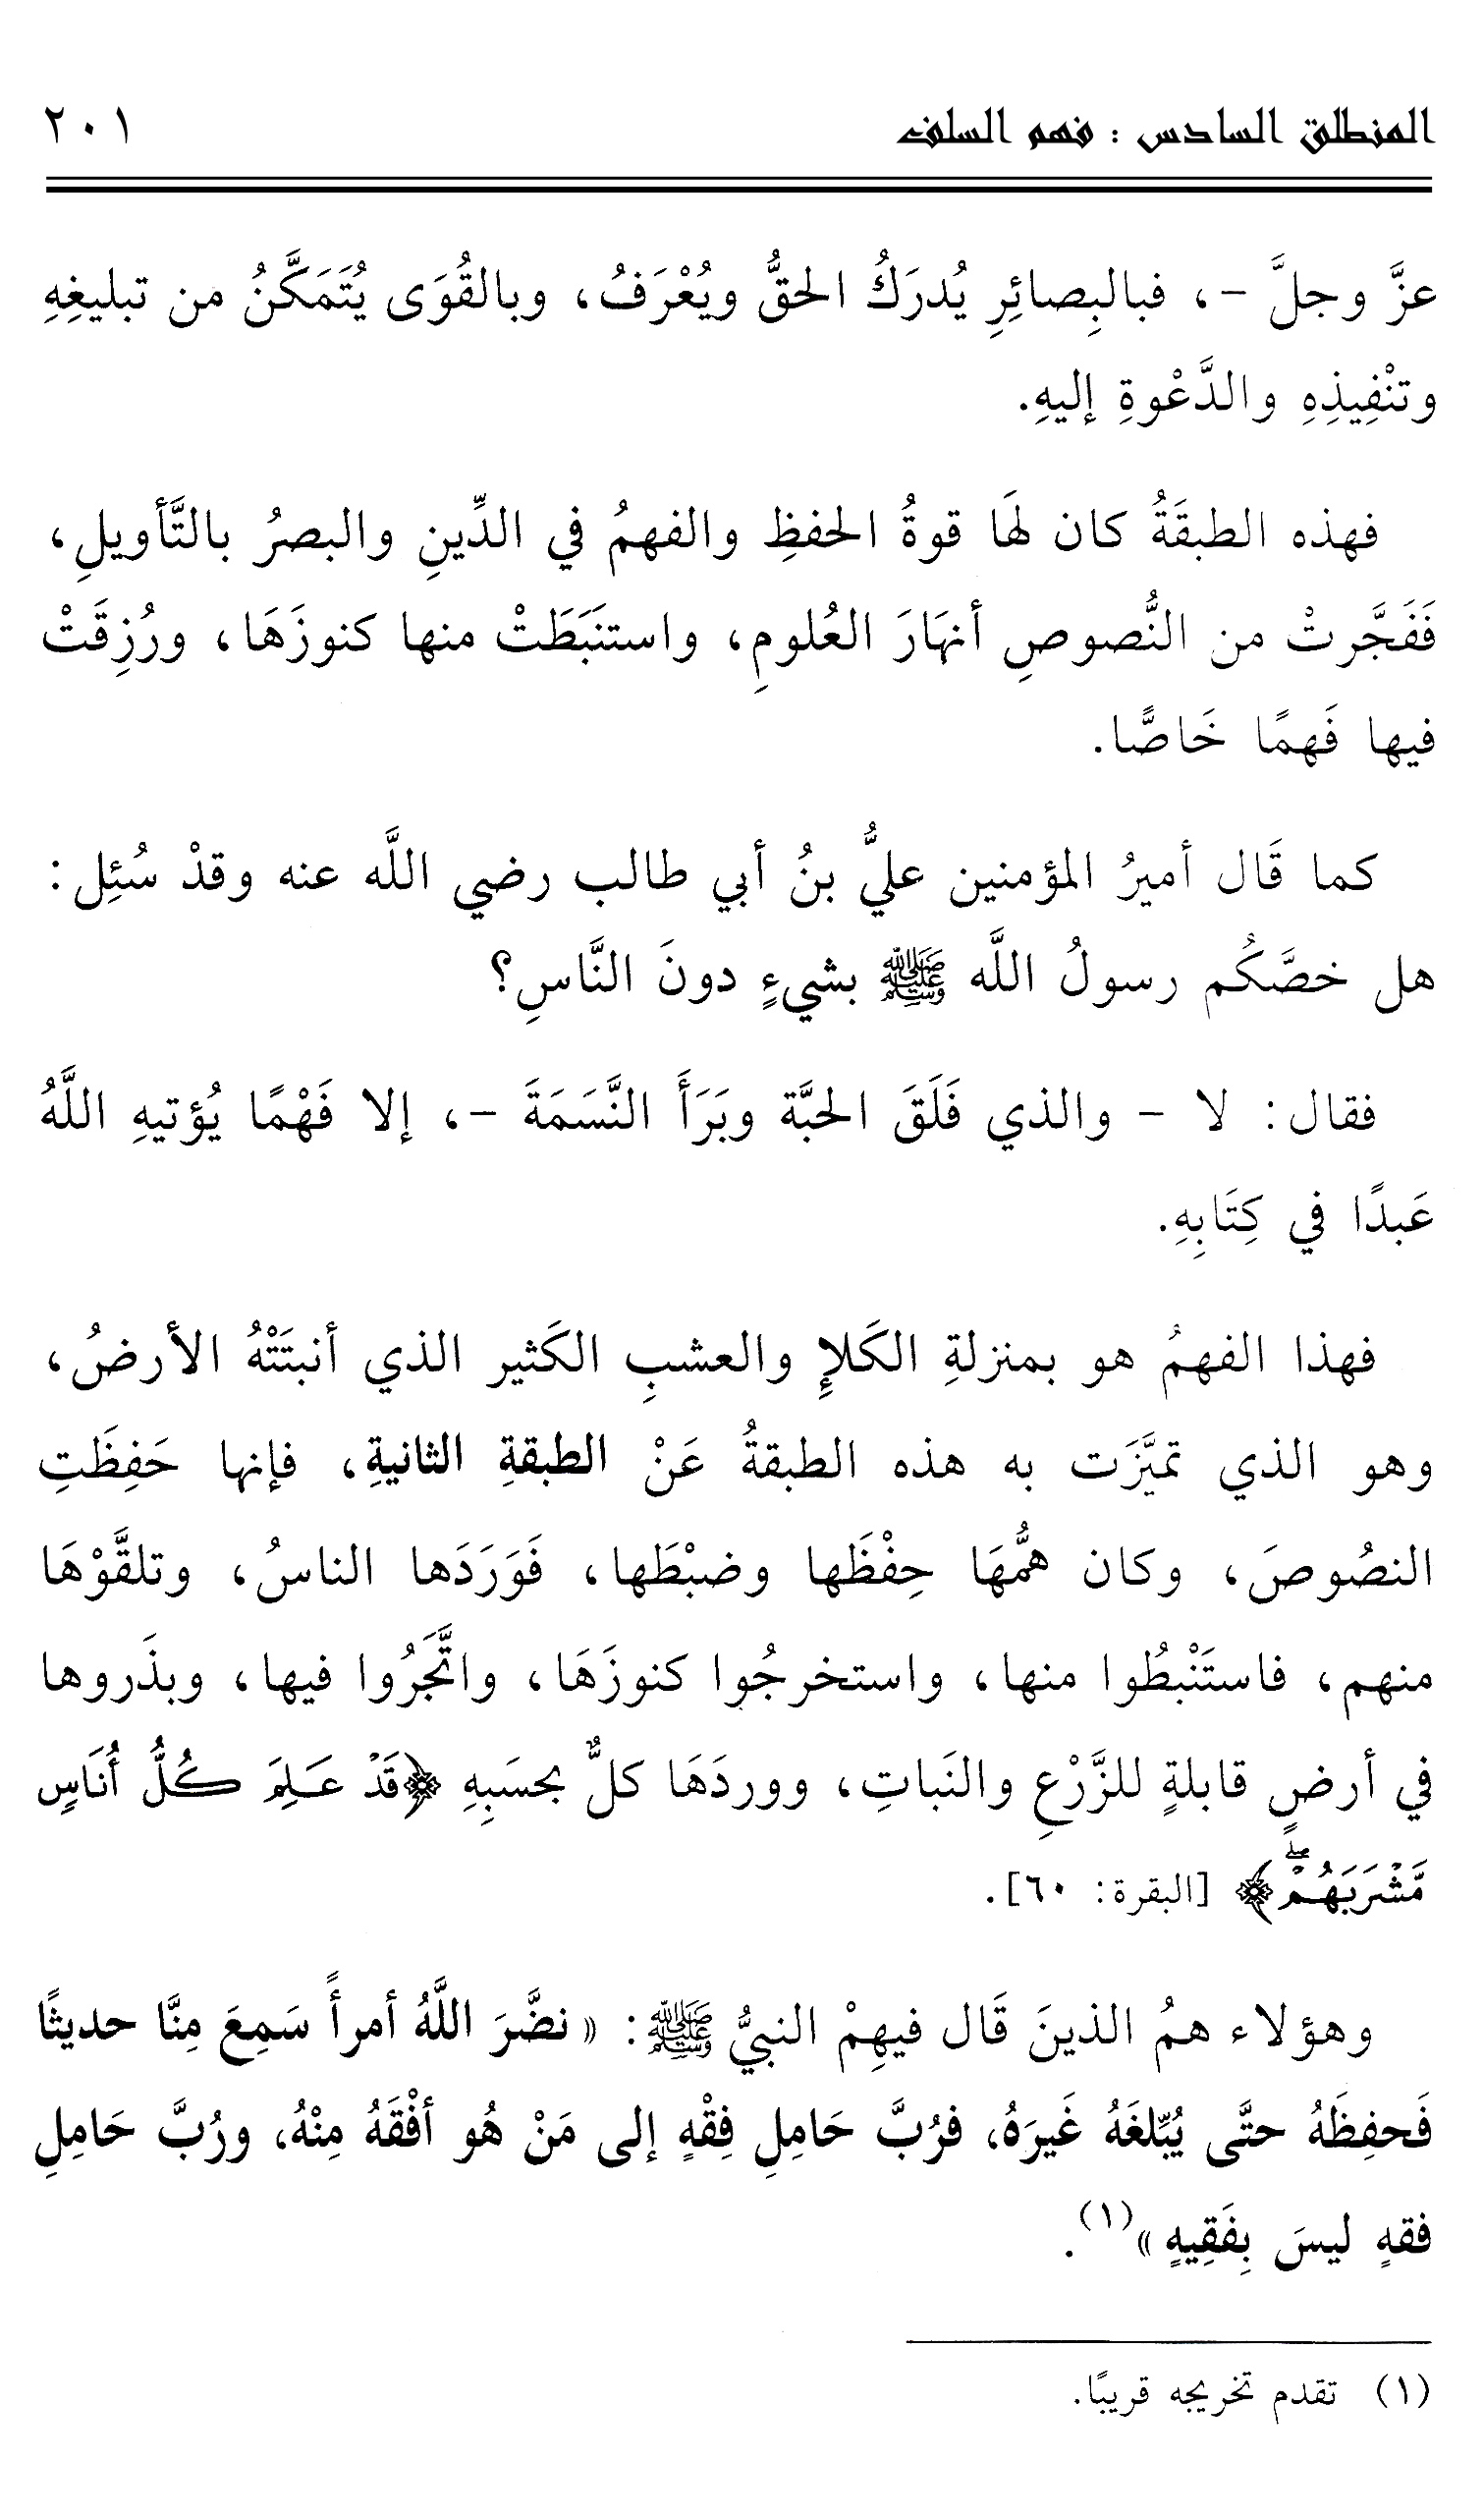 المنطلق السادس : فهم السلف ٢٠١
عزَّ وجلَّ -، فبالبِصائِرِ يُدرَكُ الحقُّ ويُعْرَفُ، وبالقُوَى يُتَمَكَّنُ من تبليغِهِ
وتنْفِيذِهِ والدَّعْوةِ إليهِ.
فهذه الطبقَةُ كان لهَا قوةُ الحفظِ والفهمُ في الدِّينِ والبصرُ بالتَّأويلِ،
فَفَجَّرتْ من النُّصوصِ أنهَارَ العُلومِ، واستنَبَطَتْ منها كنوزَهَا، ورُزِقَتْ
فيها فَهمًا خَاصًّا.
كما قَال أميرُ المؤمنين عليُّ بنُ أبي طالب رضي اللَّه عنه وقدْ سُئِل:
هل خصَّكُم رسولُ اللَّه ﷺ بشيءٍ دونَ النَّاسِ؟
فقال: لا - والذي فَلَقَ الحبَّة وبَرَأَ النَّسَمَةَ -، إلا فَهْمًا يُؤتيهِ اللَّهُ
عَبدًا في كِتَابِهِ.
فهذا الفهمُ هو بمنزلةِ الكَلإِ والعشبِ الكَثير الذي أنبتَتْهُ الأرضُ،
وهو الذي تميَّزَت به هذه الطبقةُ عَنْ الطبقةِ الثانيةِ، فإنها حَفِظَتِ
النصُوصَ، وكان همُّهَا حِفْظَها وضبْطَها، فَوَرَدَها الناسُ، وتلقَّوْهَا
منهم، فاستَنْبطُوا منها، واستخرجُوا كنوزَهَا، واتَّجَرُوا فيها، وبذَروها
في أرضٍ قابلةٍ للزَّرْعِ والنَباتِ، ووردَهَا كلٌّ بحسَبِهِ ﴿قَدْ عَلِمَ كُلُّ أُنَاسٍ
مَّشْرَبَهُمْۖ﴾ [البقرة: ٦٠].
وهؤلاء همُ الذينَ قَال فيهِمْ النبيُّ ﷺ: «نضَّرَ اللَّهُ أمرأً سَمِعَ مِنَّا حديثًا
فَحفِظَهُ حتَّى يُبِّلغَهُ غَيرَهُ، فرُبَّ حَامِلِ فِقْهٍ إلى مَنْ هُو أفْقَهُ مِنْهُ، ورُبَّ حَامِلِ
فقهٍ ليسَ بِفَقِيهٍ»(١).
(١) تقدم تخريجه قريبًا.